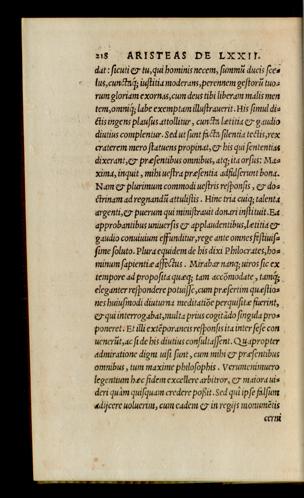 218 ARISTEAS DE LXXII.
dat: sicuti & tu, qui hominis necem, summũ ducis sce-
lus, cunctaq; iustitia moderans, perennem gestorũ tuo-
rum gloriam exornas, cum deus tibi liberam malis men
tem, omniq; labe exemptam illustrauerit. His simul di-
ctis ingens plausus attollitur, cuncta lætitia & gaudio
diutius complentur. Sed ut sunt facta silentia tectis, rex
craterem mero statuens propinat, & his qui sententias
dixerant, & præsentibus omnibus, atq; ita orsus: Ma-
xima, inquit, mihi uestra præsentia adfiderunt bona.
Nam & plurimum commodi uestris responsis, & do-
ctrinam ad regnandũ attulistis. Hinc tria cuiq; talenta
argenti, & puerum qui ministrauit donari instituit. Ea
approbantibus uniuersis & applaudentibus, lætitia &
gaudio conuiuium effunditur, rege ante omnes festiuis-
sime soluto. Plura equidem de his dixi Philocrates, ho-
minum sapientiæ affectus. Mirabar nanq; uiros sic ex
tempore ad proposita quæq; tam accõmodate, tamq;
eleganter respondere potuisse, cum præsertim quæstio-
nes huiusmodi diuturna meditatiõe perquisitæ fuerint,
& qui interrogabat, multa prius cogitãdo singula pro-
poneret. Et illi extẽporaneis responsis ita inter sese con
uenerũt, ac si de his diutius consultassent. Quapropter
admiratione digni uisi sunt, cum mihi & præsentibus
omnibus, tum maxime philosophis. Verumenimuero
legentium hæc fidem excellere arbitror, & maiora ui-
deri quàm quisquam credere possit. Sed quì ipse falsum
adijcere uoluerim, cum eadem & in regijs monumẽtis
cerni